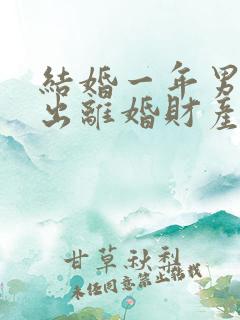 結婚一年男
出離婚財產
甘草秋梨
未经同意禁止转载